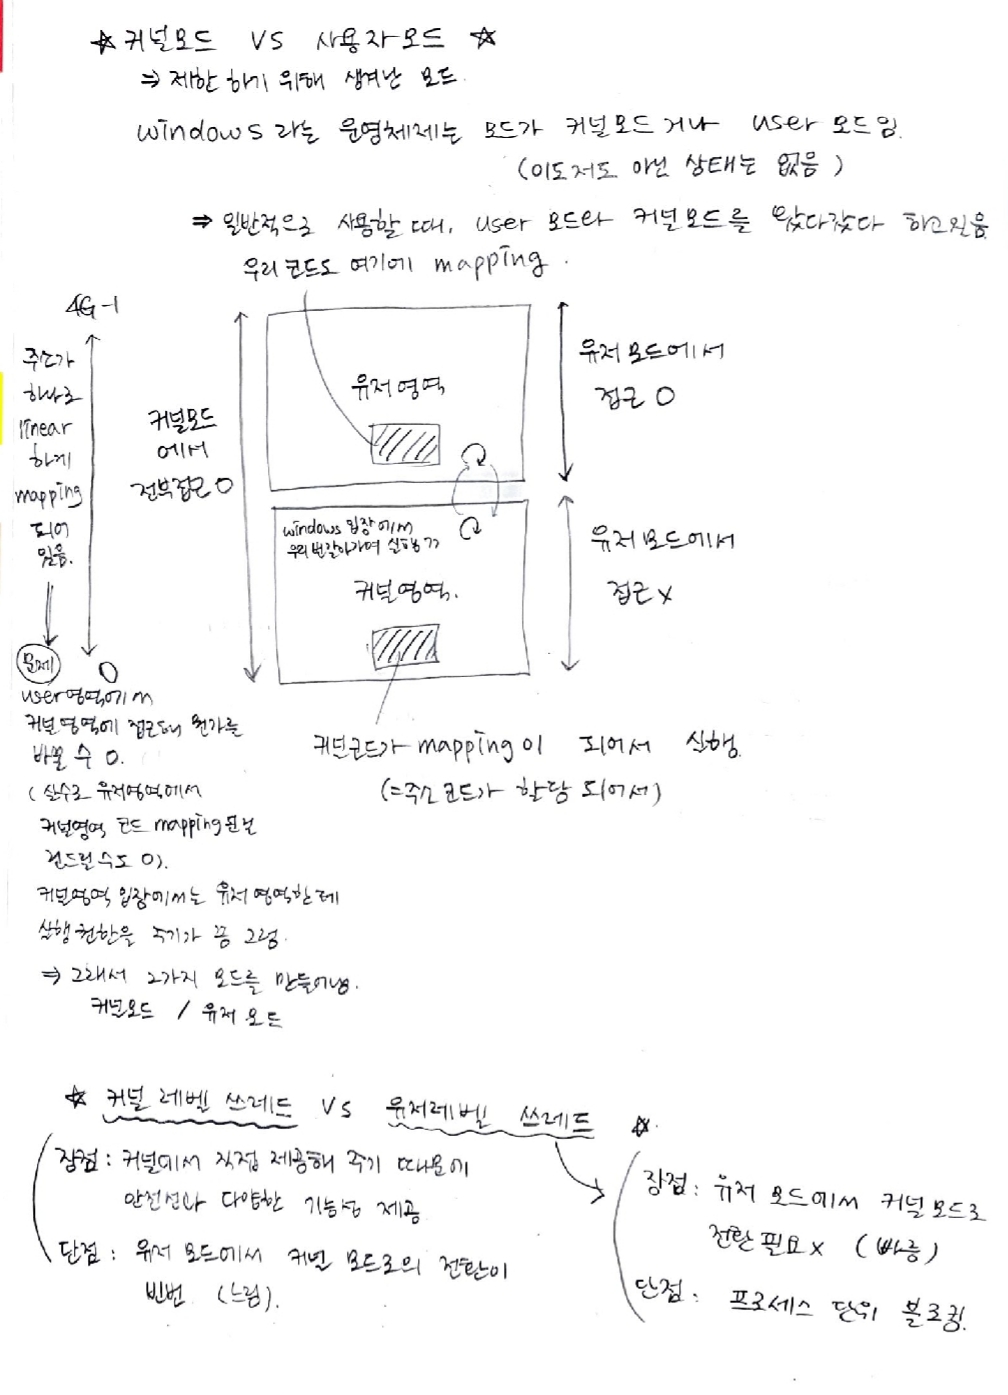 ☆ 커널모드 VS 사용자모드 ☆
⇒ 제한 하기 위해 생겨난 모드.
windows 라는 운영체제는 모드가 커널모드 거나 user 모드임.
(이도저도 아닌 상태는 없음)
⇒ 일반적으로 사용할 때, user 모드와 커널모드를 왔다갔다 하고있음
우리 코드도 여기에 mapping.
4G-1
주소가
하나로
linear
하게
mapping
되어
있음.
0
커널모드
에서
전부접근 O
유저영역
유저 모드에서
접근 O
windows 입장에서
우리 번갈아가며 실행
커널영역.
유저 모드에서
접근 X
문제
user영역에서
커널영역에 접근해 뭔가를
바꿀 수 O.
(실수로 유저영역에서
커널영역 코드 mapping된걸
건드릴수도 O).
커널영역 입장에서는 유저영역한테
실행권한을 주기가 좀 그럼.
⇒ 그래서 2가지 모드를 만들어냄.
커널모드 / 유저모드
커널코드가 mapping이 되어서 실행.
(=주소 코드가 할당 되어서)
☆ 커널 레벨 쓰레드 VS 유저레벨 쓰레드 ☆.
장점 : 커널에서 직접 제공해 주기 때문에
안전성과 다양한 기능성 제공
단점 : 유저 모드에서 커널 모드로의 전환이
빈번 (느림).
장점 : 유저 모드에서 커널 모드로
전환 필요 X (빠름)
단점 : 프로세스 단위 블로킹.